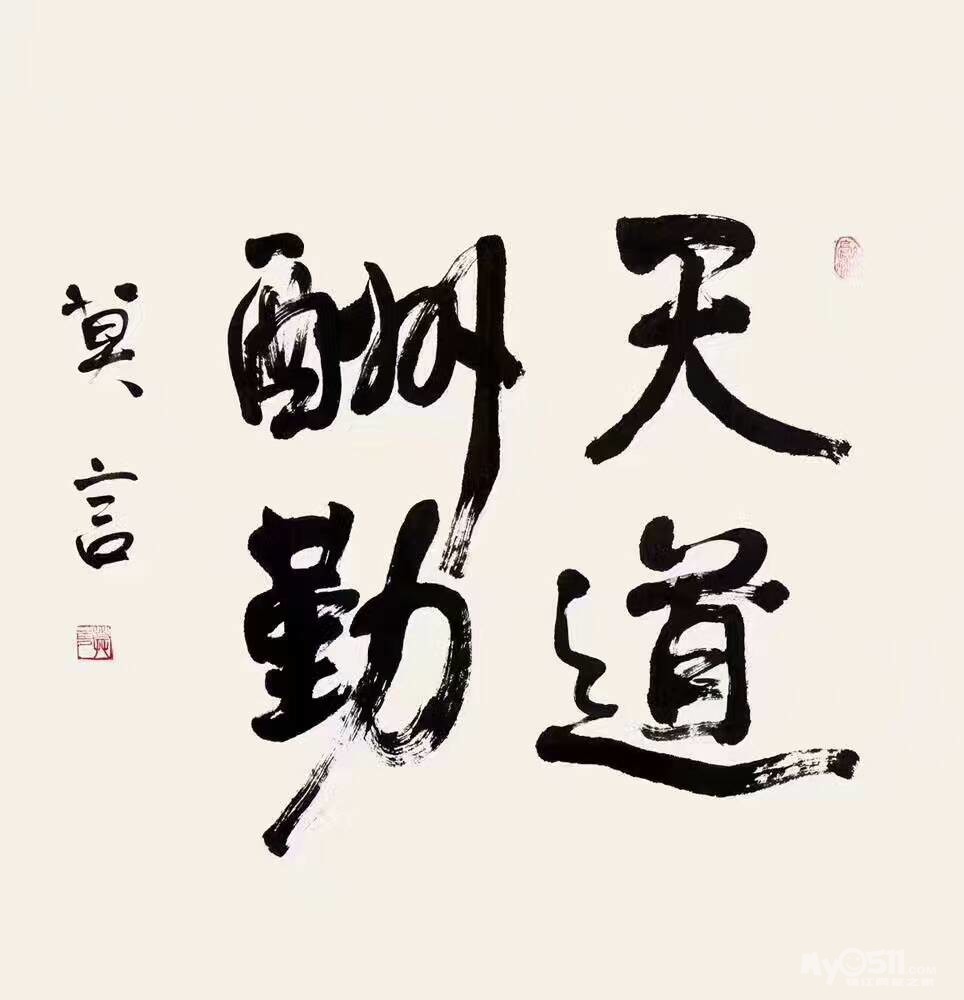 天道
酬勤
莫言